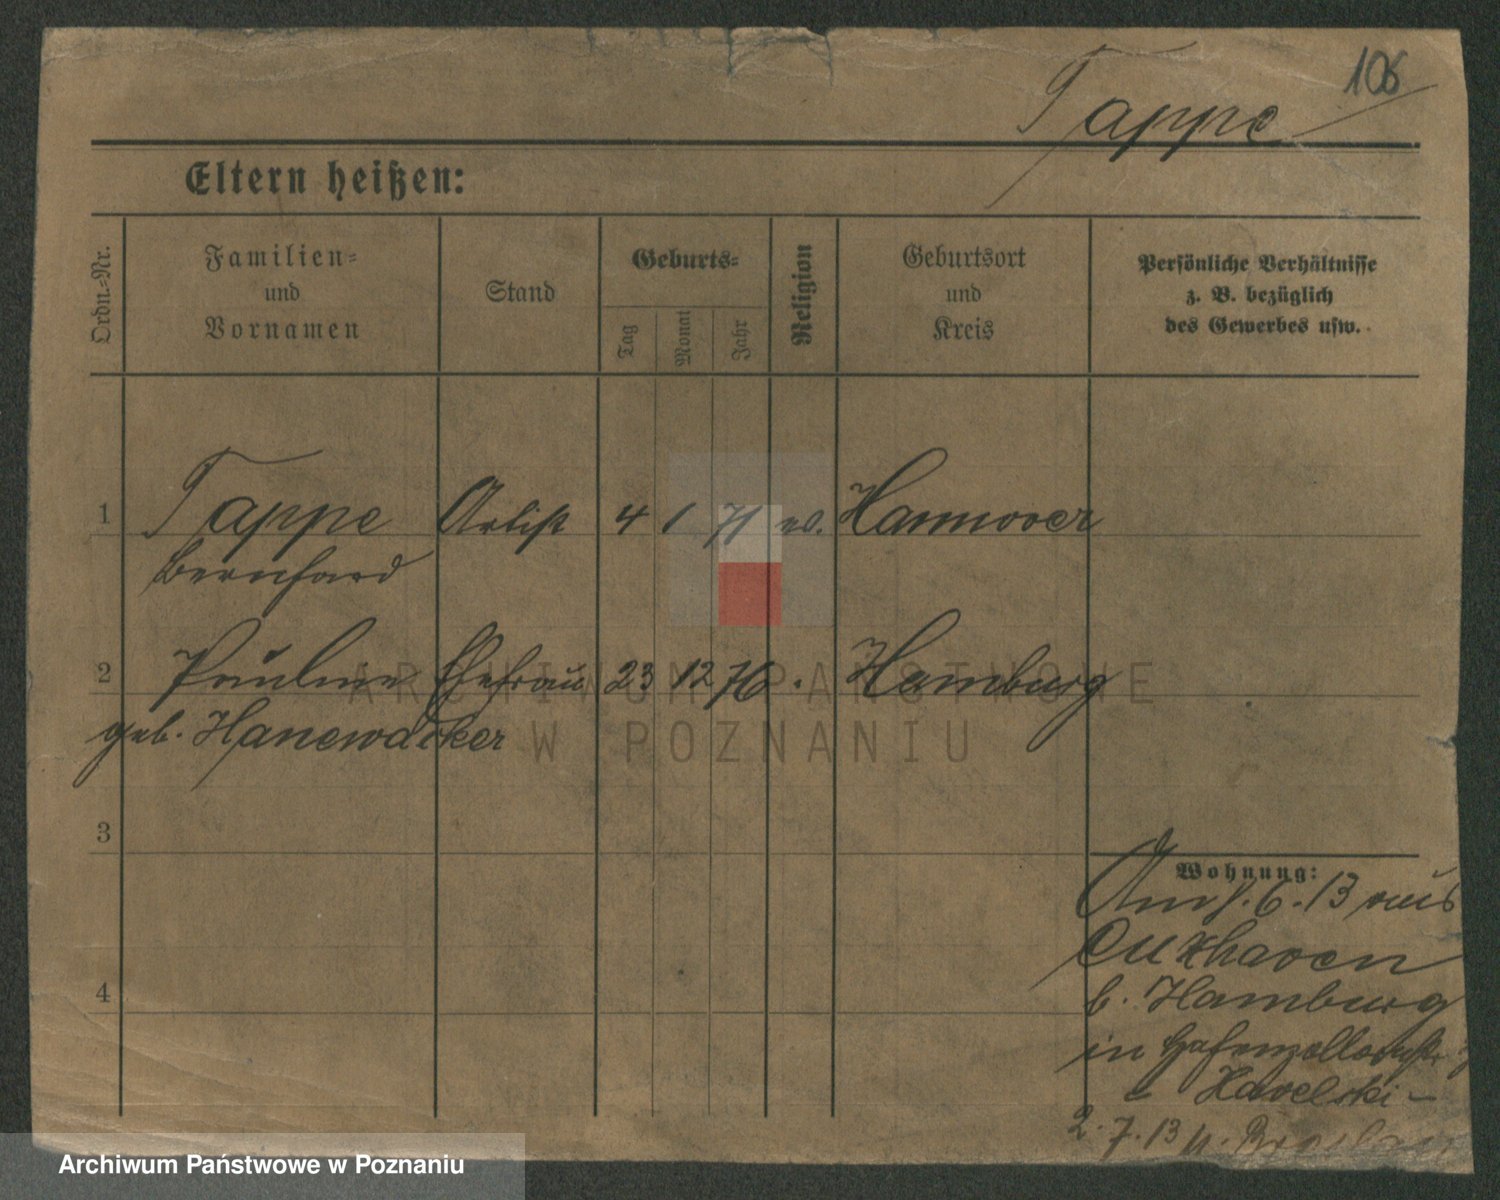 106
Tappe
Eltern heißen:
Ordn.-Nr.
Familien-
und
Vornamen
Stand
Geburts-
Tag
Monat
Jahr
Religion
Geburtsort
und
Kreis
Persönliche Verhältnisse
z. B. bezüglich
des Gewerbes usw.
1 Tappe Artist 4 1 71 ev. Hannover
Bernhard
2 Pauline Ehefrau 23 12 76 . Hamburg
geb. Hanewacker
3
4
Wohnung:
Am 1. 6. 13 aus
Cuxhaven
b. Hamburg
in
Havelski –
2. 7. 13 n. Breslau
ARCHIWUM PAŃSTWOWE
W POZNANIU
Archiwum Państwowe w Poznaniu